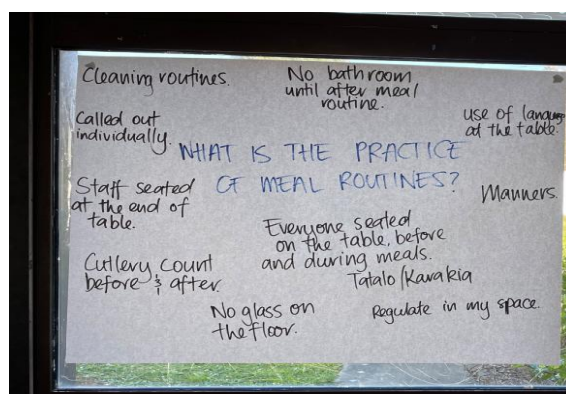 Cleaning routines.
No bathroom
until after meal
routine.
Called out
individually.
use of language
at the table.
WHAT IS THE PRACTICE
OF MEAL ROUTINES?
Staff seated
at the end of
table.
Manners.
Everyone seated
on the table, before
and during meals.
Cutlery count
before & after.
Tatalo/Karakia
No glass on
the floor.
Regulate in my space.